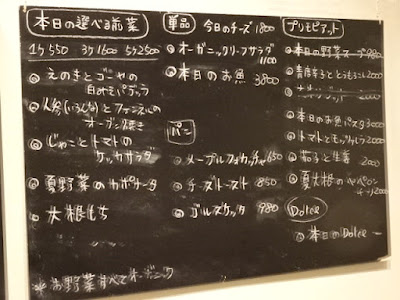 本日の選べる前菜
1ケ550 3ケ1600 5ケ2500
◎えのきとゴーヤの
白みそパ
◎人参(いろんな)とフェンネルの
オーブン焼き
◎じゃことトマトの
ケッカサラダ
◎夏野菜のカポナータ
◎大根もち
※お野菜すべてオーガニック
単品
今日のチーズ1800
◎オーガニックリーフサラダ
1100
◎本日のお魚 3800
パン
◎メープルフォカッチャ650
◎チーズトースト 850
◎ブルスケッタ 980
プリモピアット
◎本日の野菜スープ980
◎とうもろこし2000
2000
◎本日のお魚パスタ3000
◎トマトとモッツァレラ2000
◎茄子と生姜 2000
◎夏大根の
2000
Dolce
◎本日のDolce ー